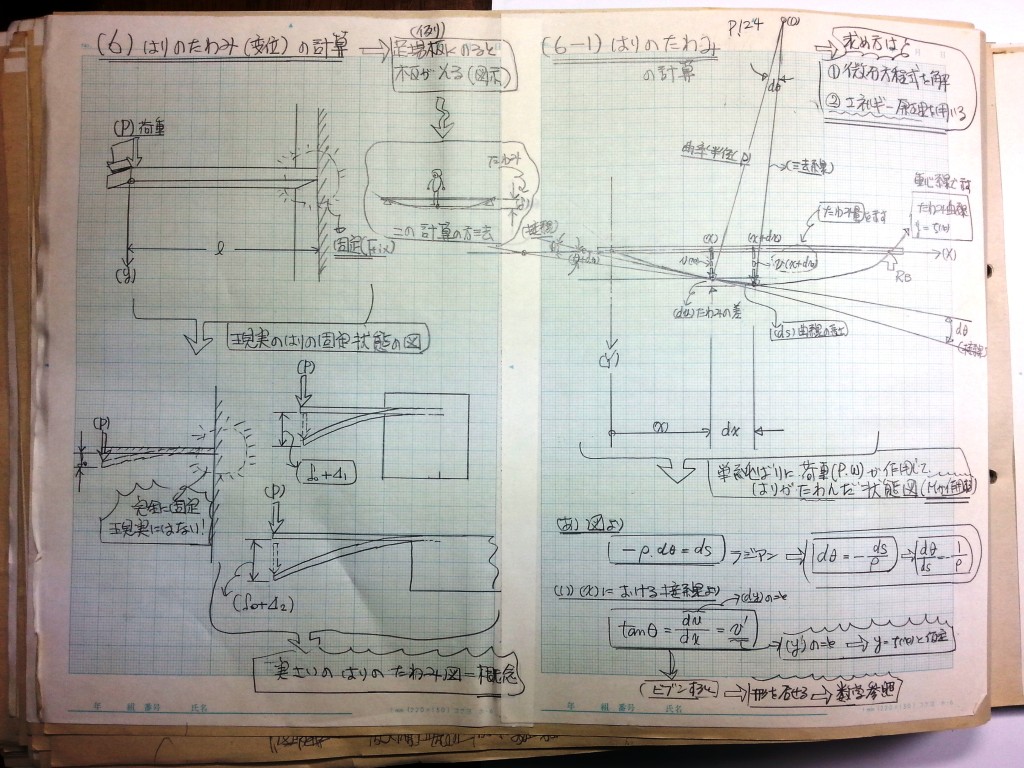 (6) はりのたわみ(変位)の計算
(例)
足場板にのると
板が
(図示)
(P) 荷重
たわみ
この計算の方法
固定(Fix)
l
(y)
現実のはりの固定状態の図
(P)
(P)
δ₀+Δ₁
完全に固定
現実にはない!
(P)
(δ₀+Δ₂)
実さいのはりのたわみ図=概念
年 組 番号 氏名
(6-1) はりのたわみ
の計算
P124
(O)
求め方は
① 微分方程式を解
② エネルギー原理を用いる
dθ
曲率半径ρ
(法線)
重心線で
たわみ曲線
たわみ量を示す
(接線)
(x)
(x+dx)
(X)
v(x)
v(x+dx)
RB
(dv)たわみの差
(ds)曲線の長さ
dθ
(接線)
(Y)
(x)
dx
単純ばりに荷重(P.W)が作用して
はりがたわんだ状態図(Mが作用)
(あ) 図より
-ρ.dθ=ds
ラジアン
dθ=-ds/ρ
dθ/ds=-1/ρ
(い) (x)における接線より
(dy)のこと
tanθ=dv/dx=v'
(y')のこと
y=f(x)と仮定
(ビブンすると)
形をよせる
数学参照
年 組 番号 氏名